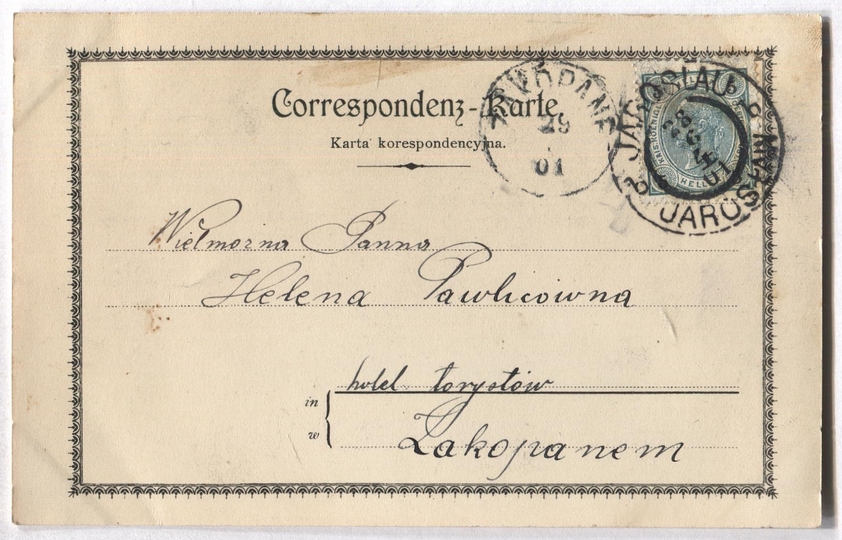 Correspondenz-Karte.
Karta korespondencyjna.
ZAKOPANE
29
01
JAROSLAU
28
01
JAROSŁAW
HELLER
Wielmożna Panna
Helena Pawlicówna
hotel torystów
in
w
Zakopanem